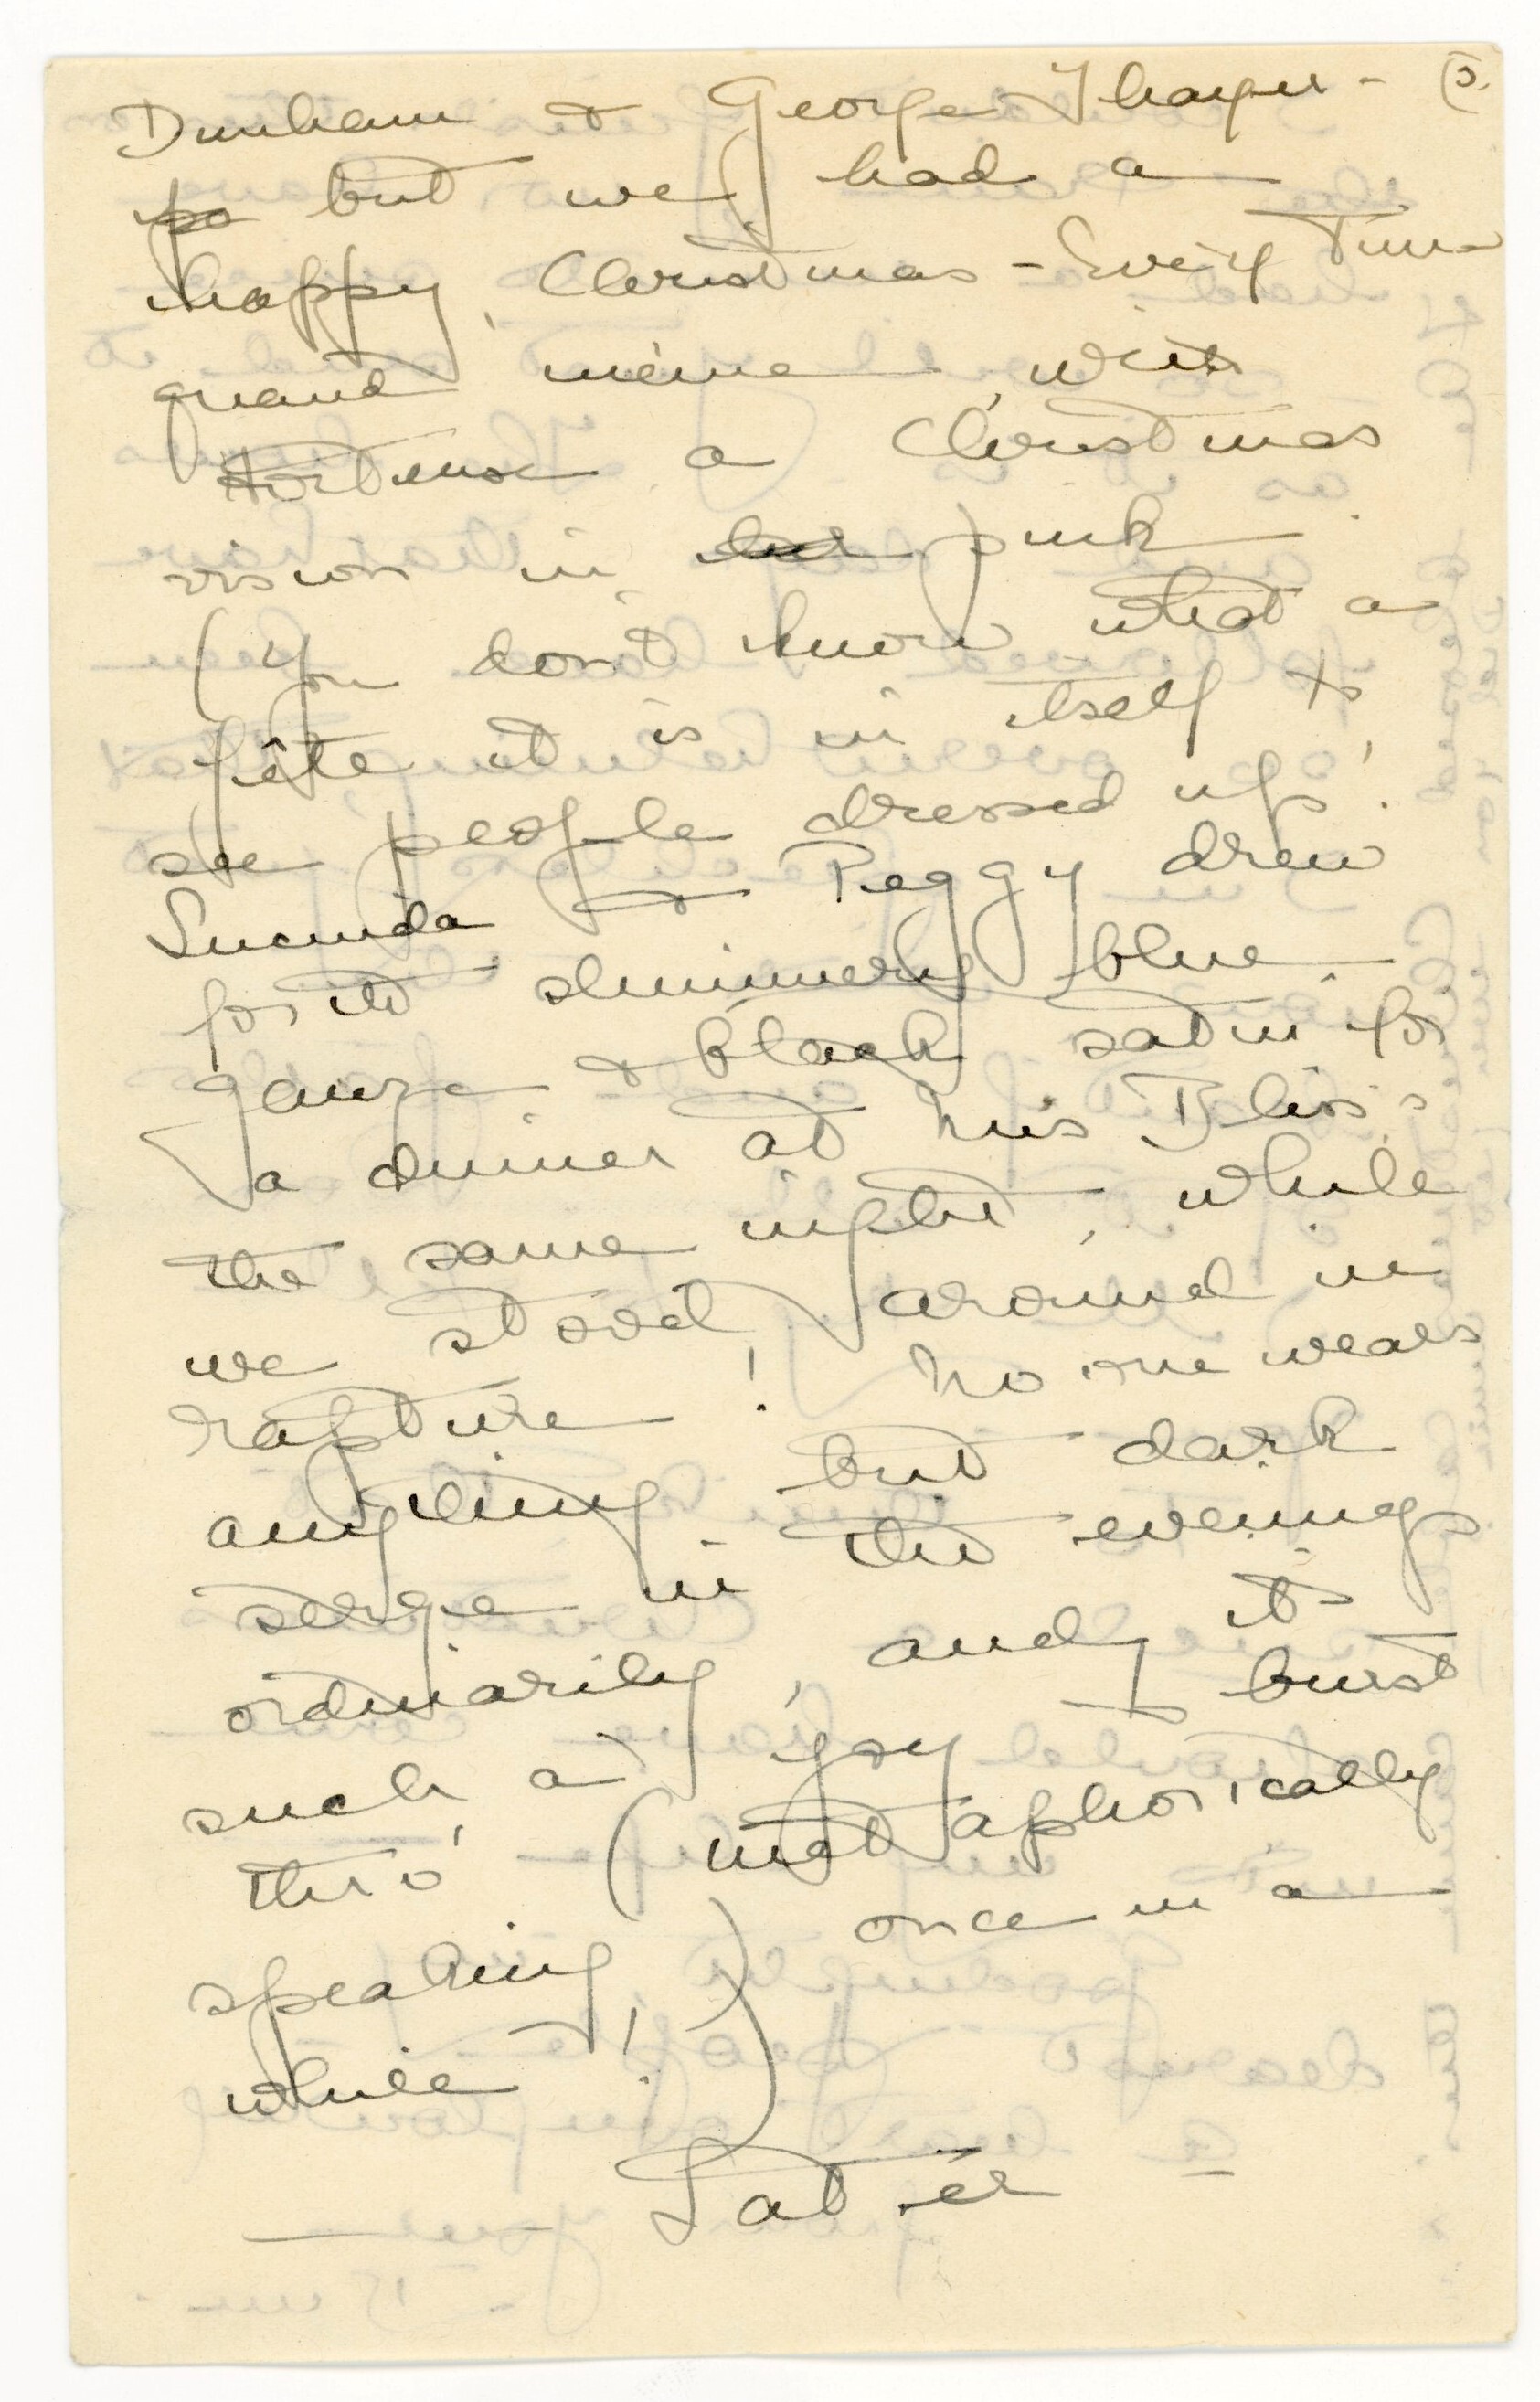 Dunham & George Thayer - 5.
so but we had a
happy Christmas - Every time
quand même with
Hortense a Christmas
vision in her pink
(You don't know what a
fête it is in itself to
see people dressed up!
Lucinda & Peggy drew
forth shimmery blue
gauze & black satin for
a dinner at Mrs Bliss's
the same night, while
we stood around in
rapture! No one wears
anything but dark
serge in the evenings
ordinarily, and it's
such a joy to burst
thro' (metaphorically
speaking,) once in a
while!)
Later